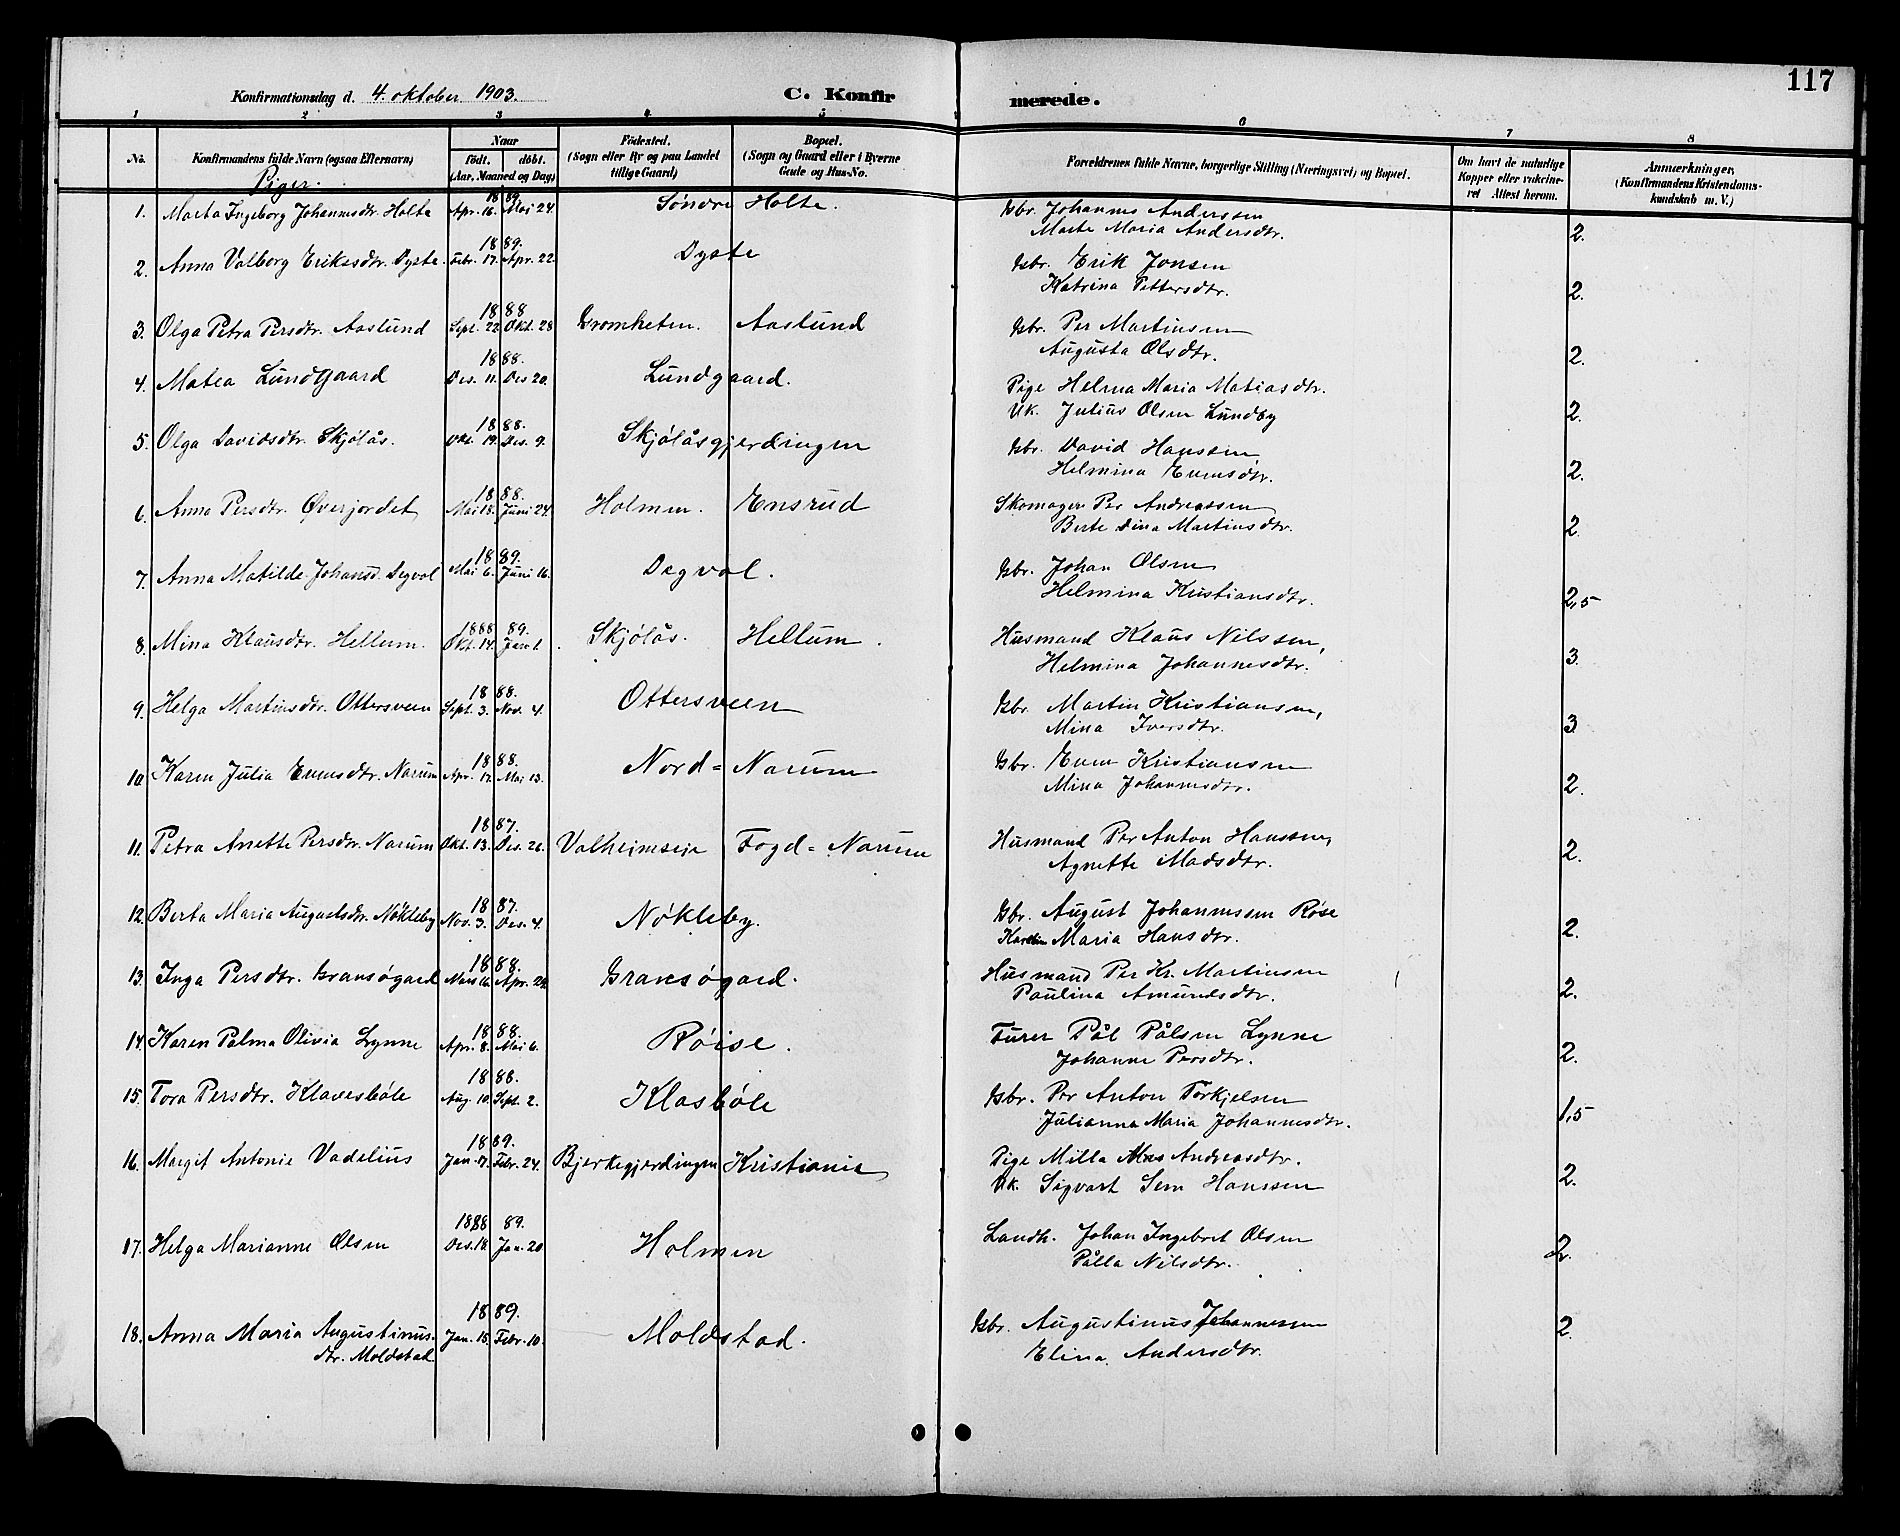 117
Konfirmationsdag d. 4. oktober 1903. C. Konfirmerede.
1 2 3 4 5 6 7 8
No. Konfirmandens fulde Navn (ogsaa Efternavn) Naar født. døbt. (Aar, Maaned og Dag) Fødested. (Sogn eller By og paa Landet tillige Gaard) Bopæl. (Sogn og Gaard eller i Byerne Gade og Hus-No. Forældrenes fulde Navne, borgerlige Stilling (Næringsvei) og Bopæl. Om havt de naturlige Kopper eller vakcineret Attest herom. Anmærkninger, (Konfirmandens Kristendomskundskab m. V.)
Piger.
1. Marta Ingeborg Johannesdtr. Holte 1889. Apr. 16. Mai 24. Søndre Holte. Gbr. Johannes Anderssen
Marte Maria Andersdtr. 2.
2. Anna Valborg Eriksdtr. Dyste. 1889. Febr. 17. Apr. 22. Dyste Gbr. Erik Jonsen
Katrina Pettersdtr. 2.
3. Olga Petra Persdtr. Aaslund 1888 Sept. 22. Okt. 28 Gromheten. Aaslund Gbr. Per Martinsen
Augusta Olsdtr. 2.
4. Matea Lundgaard 1888. Des. 11. Des 20. Lundgaard. Pige Helma Maria Matiasdtr.
Uk. Julius Olsen Lundby 2.
5. Olga Davidsdtr. Skjølås. 1888. Okt. 19. Des. 9. Skjølåsgjerdingen Gbr. David Hanssen,
Helmina Evensdtr. 2.
6. Anna Persdtr. Øverjordet 1888. Mai 18. Juni 24. Holmen. Ensrud Skomager Per Andreassen
Berte Dina Martinsdtr. 2.
7. Anna Matilde Johansd. Degvol 1889. Mai 6. Juni 16. Degvol. Gbr. Johan Olsen
Helmina Kristiansdtr. 2,5
8. Mina Klausdtr. Hellum. 1888 89. Okt. 14. Jan. 1. Skjølås. Hellum. Husmand Klaus Nilssen,
Helmina Johannesdtr. 3.
9. Helga Martinsdtr. Ottersveen 1888. Sept. 3. Nov. 4. Ottersveen Gbr. Martin Kristiansen,
Mina Iversdtr. 3
10. Karen Julia Evensdtr. Narum 1888. Apr. 17. Mai 13. Nord=Narum Gbr. Even Kristiansen
Mina Johannesdtr. 2.
11. Petra Anette Persdtr. Narum 1887. Okt. 13. Des. 26. Valheimseje Fogd=Narum Husmand Per Anton Hanssen,
Agnette Madsdtr. 2.
12. Berta Maria Augustsdtr. Nøkleby 1887. Nov. 3. Des. 4. Nøkleby. Gbr. August Johannessen Røse
Karelin Maria Hansdtr. 2.
13. Inga Persdtr. Gransøgard 1888. Mars 16. Apr. 29. Gransøgard. Husmand Per Kr. Martinsen
Paulina Amundsdtr. 2.
14. Karen Palma Olivia Lynne 1888. Apr. 8. Mai 6. Røise. Furer Pål Pålsen Lynne
Johanne Persdtr. 2.
15. Tora Persdtr. Klavesbøle 1888. Aug. 10. Sept. 2. Klasbøle Gbr. Per Anton Torkjelsen
Julianna Maria Johannesdtr. 1,5
16. Margit Antonie Vadelius 1889. Jan. 17. Febr. 24. Bjerkegjerdingen Kristiania Pige Milla Andreasdtr.
Uk. Sigvart Sem Hanssen 2.
17. Helga Marianne Olsen 1888 89. Des. 18. Jan. 20 Holmen Landh. Johan Ingebret Olsen
Pålla Nilsdtr. 2.
18. Anna Maria Augustinusdtr. Moldstad 1889. Jan. 15. Febr. 10. Moldstad. Gbr. Augustinus Johannessen
Elina Andersdtr. 2.